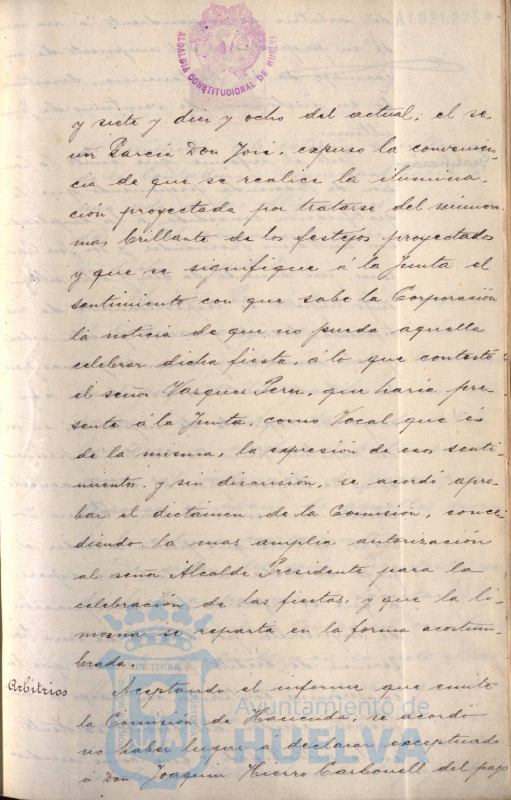 A1.021.275
ALCALDIA CONSTITUCIONAL DE HUELVA
y siete y diez y ocho del actual; el se-
ñor Garcia Don José, expuso la convenien-
cia de que se realice la ilumina-
ción proyectada por tratarse del número
mas brillante de los festejos proyectados
y que se signifique á la Junta el
sentimiento con que sabe la Corporación
la noticia de que no pueda aquella
celebrar dicha fiesta, á lo que contestó
el señor Vazquez Perez, que haria pre-
sente á la Junta, como Vocal que és
de la misma, la expresión de esos senti-
mientos, y sin discusión, se acordó apro-
bar el dictamen de la Comisión, conce-
diendo la mas amplia autorización
al señor Alcalde Presidente para la
celebración de las fiestas, y que la li-
mosna se reparta en la forma acostum-
brada.
Arbitrios Aceptando el informe que emite
la Comisión de Hacienda, se acordó
no haber lugar á declarar exceptuado
á Don Joaquin Hierro Carbonell del pago
Ayuntamiento de
HUELVA